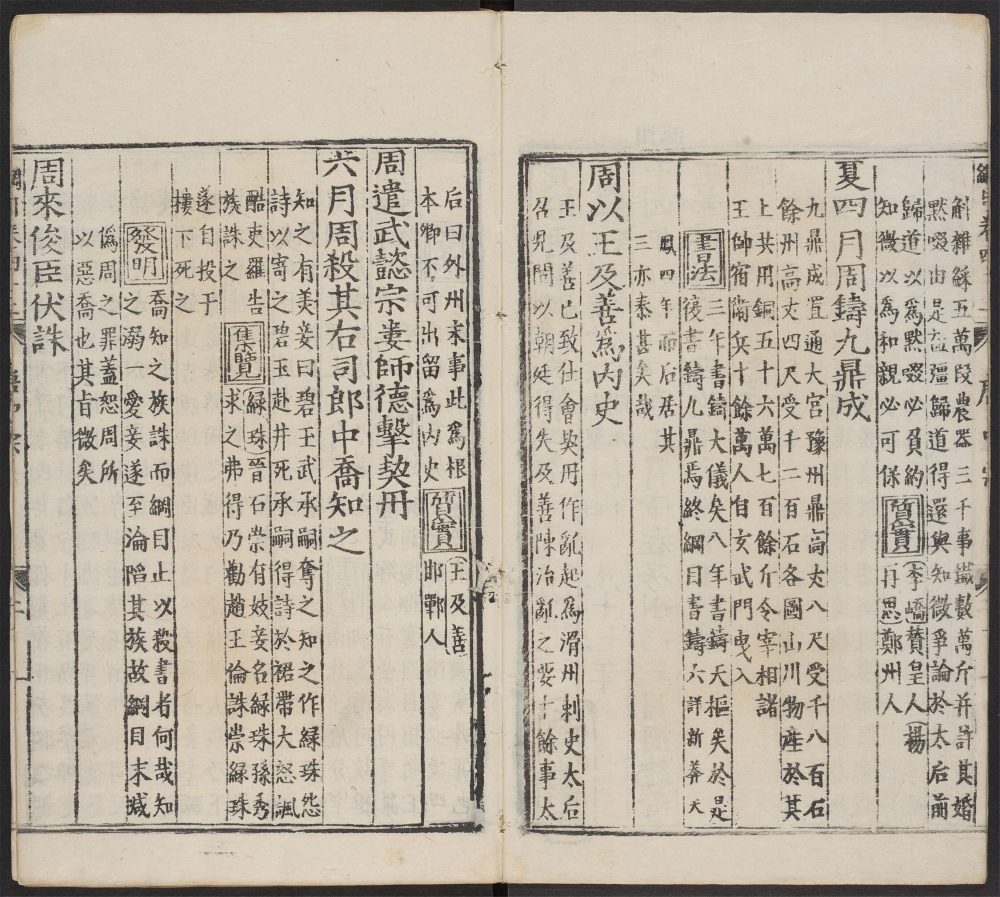 斛雜綵五萬段農器三千事鐵數萬斤并許其婚
默啜由是益彊歸道得還與知微爭論於太后前
歸道以爲默啜必負約
知微以爲和親必可保質實(李嶠)贊皇人(楊
再思)鄭州人
夏四月周鑄九鼎成
九鼎成置通天宮豫州鼎高丈八尺受千八百石
餘州高丈四尺受千二百石各圖山川物産於其
上共用銅五十六萬七百餘斤令宰相諸
王帥宿衞兵十餘萬人自玄武門曳入
書法三年書鑄大儀矣八年書鑄天樞矣於是
復書鑄九鼎焉終綱目書鑄六詳新莽天
鳳四年而后居其
三亦泰甚矣哉
周以王及善爲内史
王及善已致仕會契丹作亂起爲滑州刺史太后
召見問以朝廷得失及善陳治亂之要十餘事太
后曰外州末事此爲根
本鄉不可出留爲内史質實(王及善)
邯鄲人
周遣武懿宗婁師德擊契丹
六月周殺其右司郎中喬知之
知之有美妾曰碧玉武承嗣奪之知之作緑珠怨
詩以寄之碧玉赴井死承嗣得詩於裙帶大怒諷
酷吏羅告
族誅之集覽緑珠(晉石崇有妓妾名緑珠孫秀
求之弗得乃勸趙王倫誅崇緑珠
遂自投于
樓下死之
發明喬知之族誅而綱目止以殺書者何哉知
之溺一愛妾遂至淪陷其族故綱目末減
僞周之罪蓋恕周所
以惡喬也其旨微矣
周來俊臣伏誅